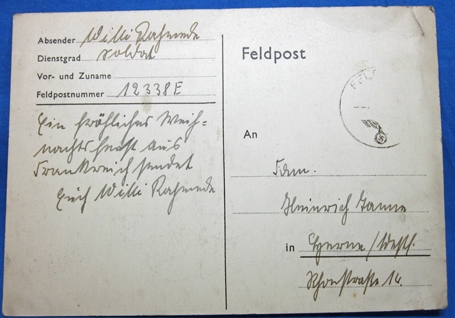 Absender Willi Rahmede
Dienstgrad Soldat
Vor- und Zuname
Feldpostnummer 12338E
Ein fröhliches Weih-
nachtsfest aus
Frankreich sendet
Euch Willi Rahmede
Feldpost
An
Fam.
Heinrich
in Herne/Westf.
14.